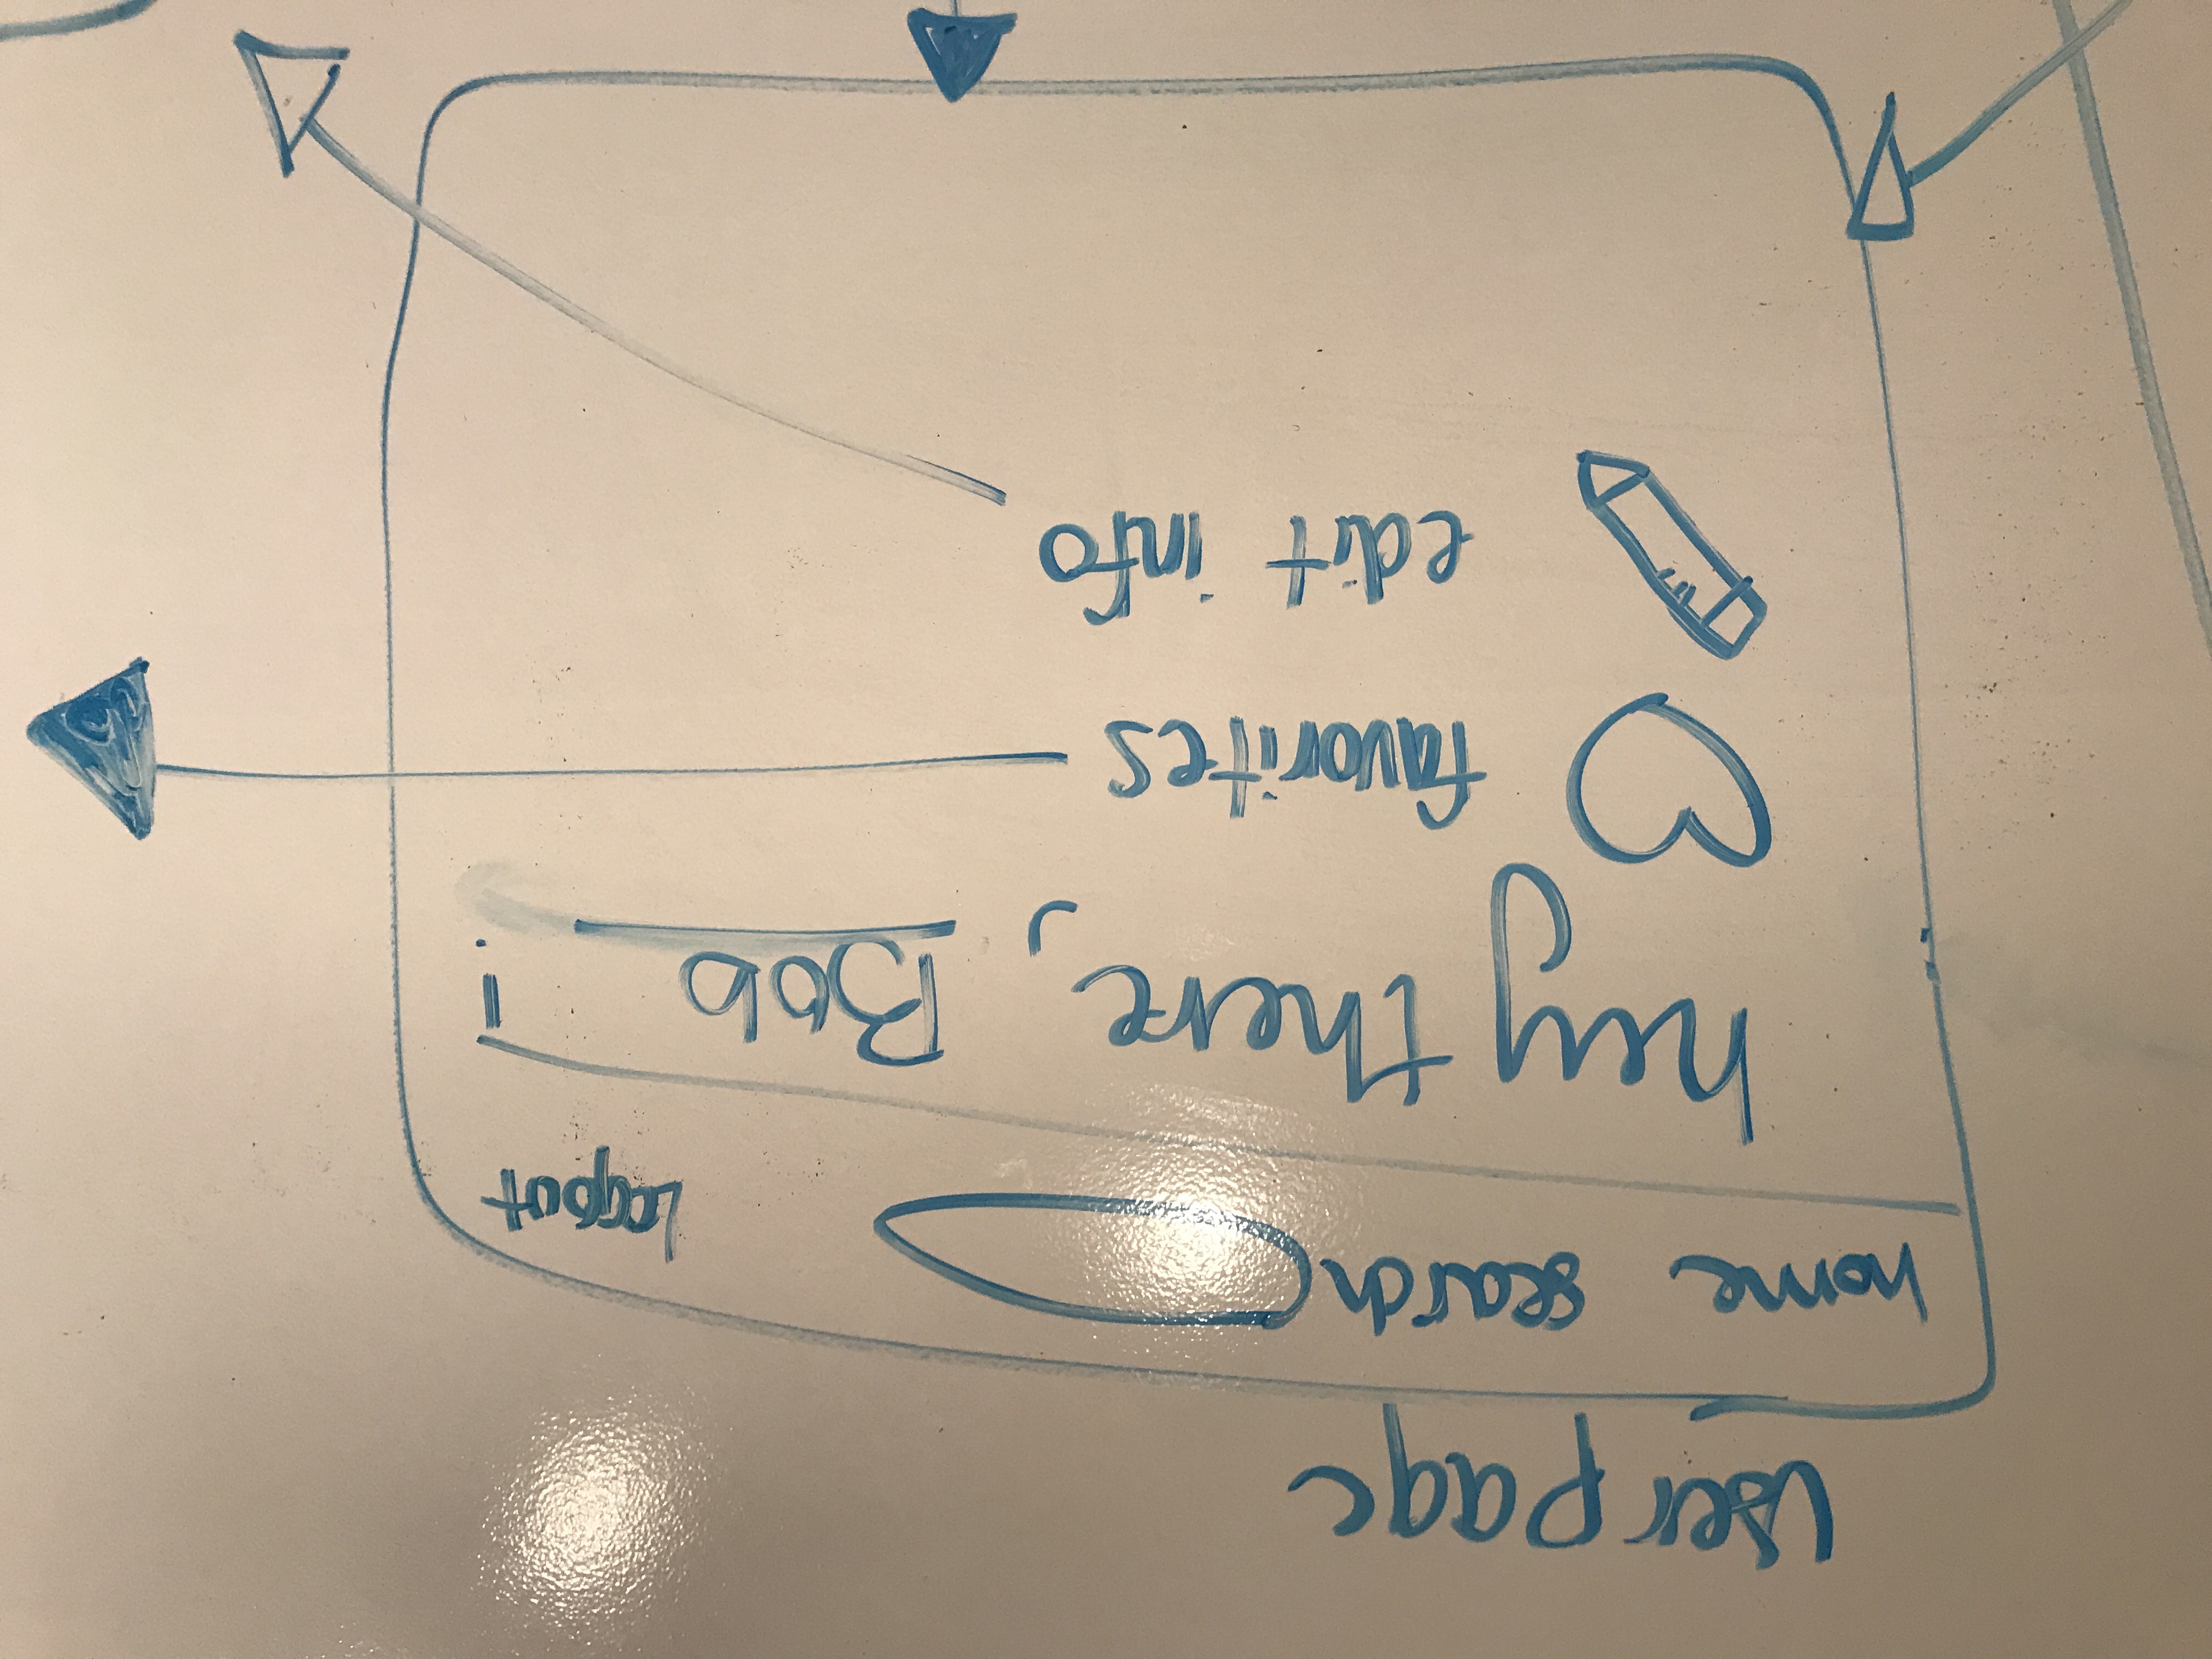 User page
home search Logout
hey there, Bob !
favorites
edit info